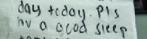 day today. Pls
hv a good sleep